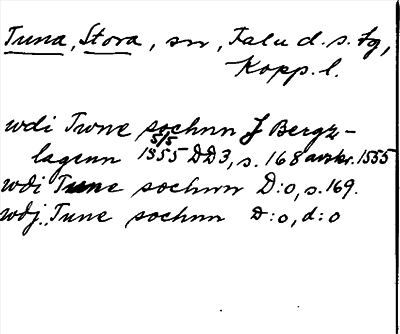 Tuna, Stora, sn, Falu d. s. fg,
Kopp. l.
wdi Twne sochnn J Bergz-
lagenn 5/5 1355 DD3, s. 168 avskr. 1555
wdi Tune sochnn D:o, s. 169.
wdj Tune sochnn D:o, d:o